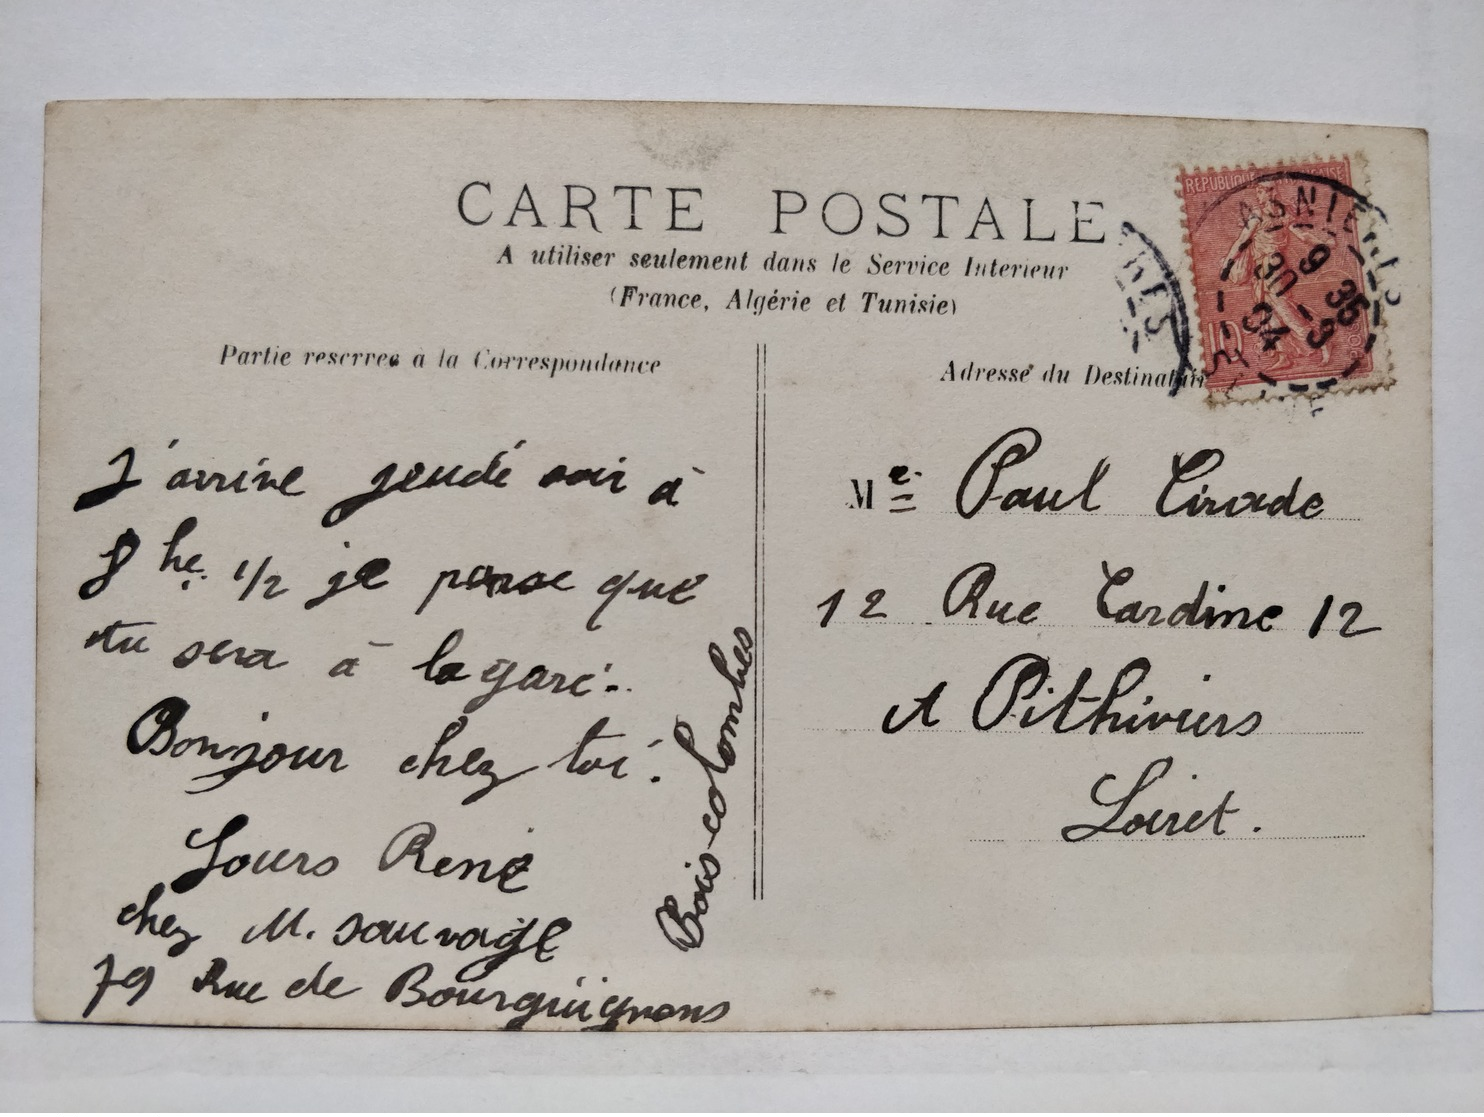 CARTE POSTALE
A utiliser seulement dans le Service Interieur
(France, Algérie et Tunisie)
Partie reservee a la Correspondance
Adresse du Destinataire
REPUBLIQUE FRANÇAISE
10
ASNIERES
9 35
30 - 9
04
J'arrive jeudi soir à
8 he. 1/2 je pense que
tu sera à la gare.
Bonjour chez toi.
René
chez M. Sauvage
79 Rue de Bourguignons
Bois-colombes
Me. Paul Cirade
12 Rue Cardine 12
A Pithiviers
Loiret.